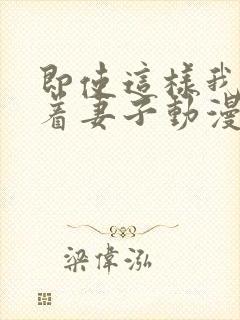 即使這樣我
着妻子動漫
梁偉泓